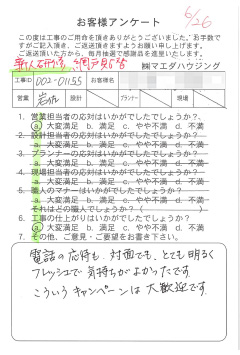 6/26
お客様アンケート
この度は工事のご用命を頂きありがとうございました。お手数で
すがご記入頂き、ご返送頂きますようお願い申し上げます。
ご返送頂いた方から、毎月抽選で感謝品を進呈いたします。
網戸見学 ㈱マエダハウジング
工事ID 002-01155 お客様名
営業 岩坂 設計 プランナー 現場
1. 営業担当者の応対はいかがでしたでしょうか？
a 大変満足 b. 満足 c. やや不満 d. 不満
2. 設計担当者の応対はいかがでしたでしょうか？
a. 大変満足 b. 満足 c. やや不満 d. 不満
3. プランナーの応対はいかがでしたでしょうか？
a. 大変満足 b. 満足 c. やや不満 d. 不満
4. 現場担当者の応対はいかがでしたでしょうか？
a. 大変満足 b. 満足 c. やや不満 d. 不満
5. 職人のマナーはいかがでしたでしょうか？
a. 大変満足 b. 満足 c. やや不満 d. 不満
それはどの職人でしょうか？( )
6. 工事の仕上がりはいかがでしたでしょうか？
a 大変満足 b. 満足 c. やや不満 d. 不満
7. その他、ご意見・ご要望をお書き下さい。
電話の応待も、対面でも、とても明るく
フレッシュで気持ちがよかったです
こういうキャンペーンは大歓迎です。